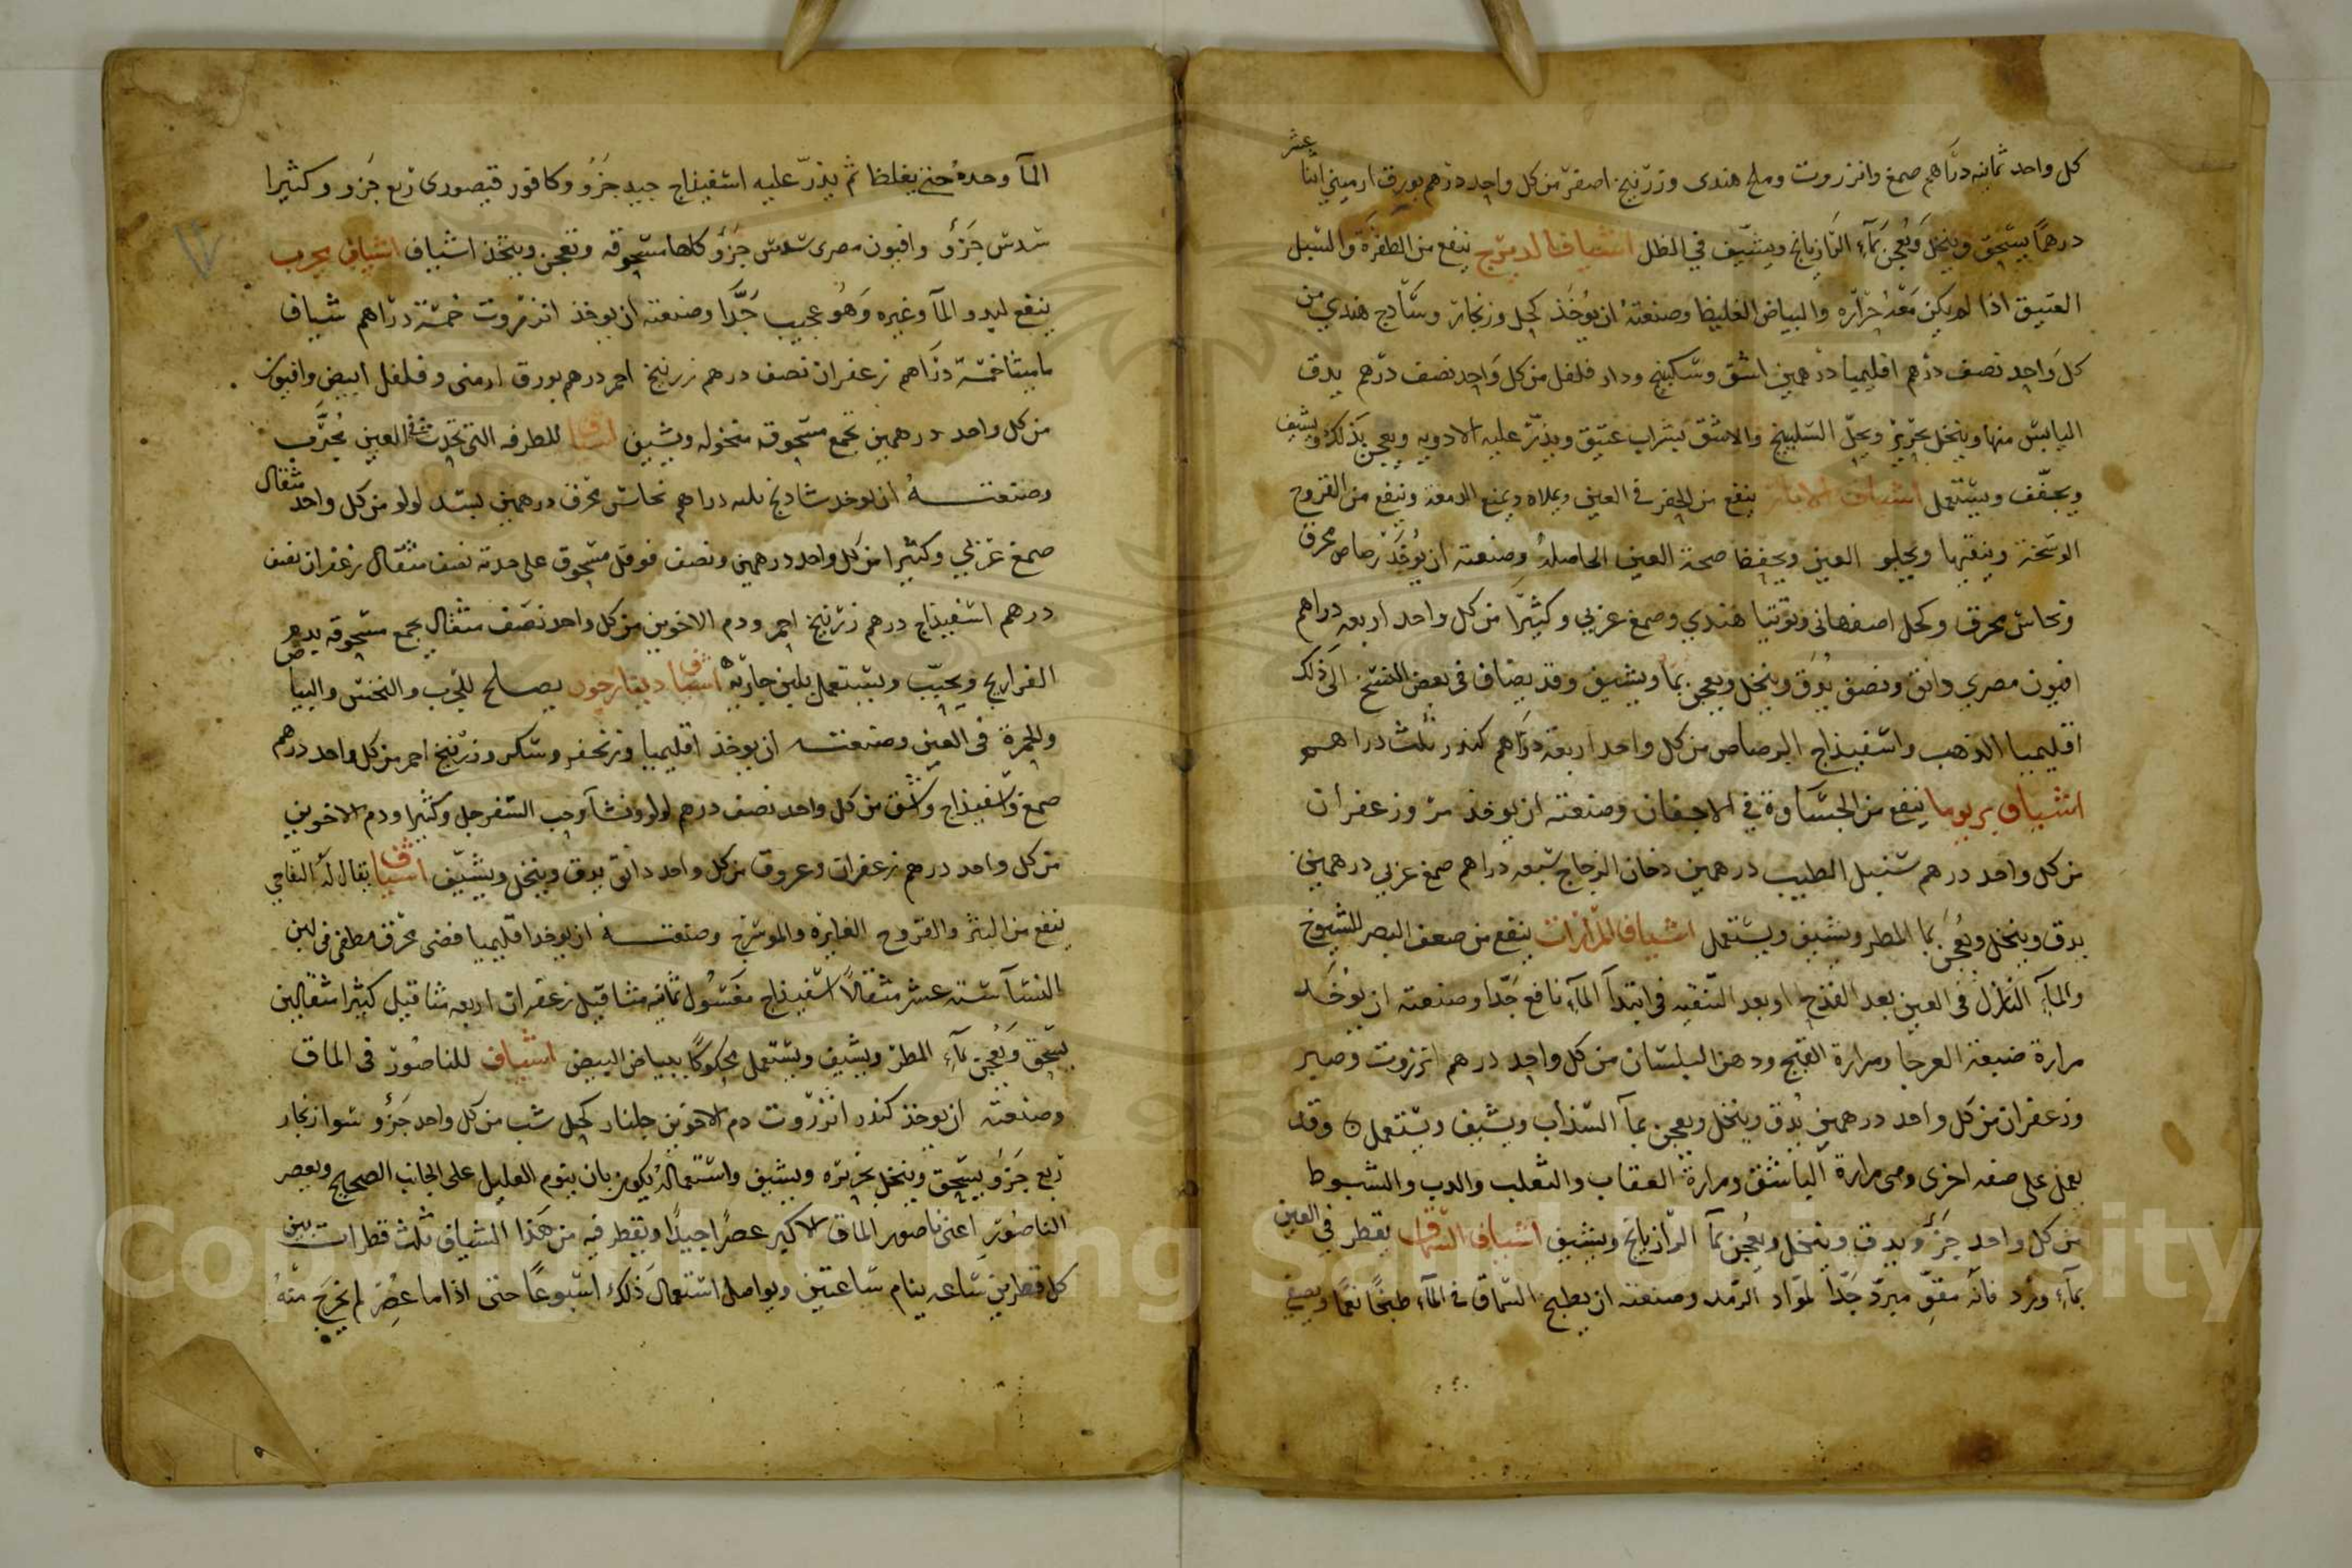 كل واحد ثمانيه دراهم صمغ وانزروت وملح هندى وزرنيخ اصفر من كل واحد درهم بورق ارميني اثنا عشر
درهمًا يسحق وينخل ويعجن بمآء الرازيانج ويشيف في الظل اشياف الديزج ينفع من الظفرة والسبل
العتيق اذا لم يكن معه حراره والبياض الغليظ وصنعته ان يوخذ كحل وزنجار وساذج هندي من
كل واحد نصف درهم اقليميا درهمين اشق وسكبينج ودار فلفل من كل واحد نصف درهم يدق
اليابس منها وينخل بحرير ويحل السكبينج والاشق بشراب عتيق ويذر عليه الادويه ويعجن بذلك ويشيف
ويجفف ويستعمل اشياف الابار ينفع من الحفر في العين ويملاه ويمنع الدمعة وينفع من القروح
الوسخة وينقيها ويجلو العين ويحفظ صحة العين الحاصلة وصنعته ان يوخذ رصاص محرق
ونحاس محرق وكحل اصفهانى وتوتيا هندي وصمغ عزبي وكثيرا من كل واحد اربعه دراهم
افيون مصري دانق ونصف يدق وينخل ويعجن بما ويشيف وقد يضاف في بعض النسخ الى ذلك
اقليميا الذهب واسفيذاج الرصاص من كل واحد اربعة دراهم كندر ثلث دراهم
اشياف بريوما ينفع من الجساوة في الاجفان وصنعته ان يوخذ مر وزعفران
من كل واحد درهم سنبل الطيب درهمين دخان الزجاج سبعه دراهم صمغ عزبي درهمين
يدق وينخل ويعجن بما المطر ويشيف ويستعمل اشياف المرارات ينفع من ضعف البصر للشيوخ
والمآء النازل في العين بعد القدح او بعد التنقيه في ابتدآ المآء نافع جدا وصنعته ان يوخذ
مرارة ضبعة العرجا ومرارة القبج ودهن البلسان من كل واحد درهم انزروت وصبر
وزعفران من كل واحد درهمين يدق وينخل ويعجن بمآ السذاب ويشيف ويستعمل ه وقد
يعمل على صفه اخرى وهى مرارة الباشق ومرارة العقاب والثعلب والدب والشبوط
من كل واحد جزؤ ويدق وينخل ويعجن بمآ الرازيانج ويشيف اشياف السماق يقطر في العين
بمآء ورد فانه مقوٍّ مبرد جدا لمواد الرمد وصنعته ان يطبخ السماق في المآء طبخًا نعمًا ويصفى
المآ وحده حتى يغلظ ثم يذر عليه اسفيذاج جيد جزو وكافور قيصورى ربع جزو وكثيرا
سدس جزؤ وافيون مصرى سدس جزؤ كلها مسحوقه وتعجن ويتخذ اشياف اشياف مجرب
ينفع لبدو المآ وغيره وهو عجيب جدا وصنعته ان يوخذ انزروت خمسة دراهم شياف
ماميثا خمسة دراهم زعفران نصف درهم زرنيخ احمر درهم بورق ارمنى وفلفل ابيض وافيون
من كل واحد درهمين تجمع مسحوقه منخوله ويشيف اشياف للطرفه التى تحدث في العين مجرب
وصنعته ان يوخذ شاذنج ثلثه دراهم نحاس محرق درهمين بسد لولو من كل واحد مثقال
صمغ عزبي وكثيرا من كل واحد درهمين ونصف فوفل مسحوق على حدته نصف مثقال زعفران نصف
درهم اسفيذاج درهم زرنيخ احمر ودم الاخوين من كل واحد نصف مثقال يجمع مسحوقه بدم
الفراريج ويحبب ويستعمل بلبن جاريه اشياف دينارجون يصلح للجرب والنخس والبياض
والحمرة في العين وصنعته ان يوخذ اقليميا وزنجفر وسكر وزرنيخ احمر من كل واحد درهم
صمغ واسفيذاج واشق من كل واحد نصف درهم لولو ونشا وحب السفرجل وكثيرا ودم الاخوين
من كل واحد درهم زعفران وعروق من كل واحد دانق يدق وينخل ويشيف اشياف يقال له التفاحي
ينفع من البثر والقروح الغايره والموسرج وصنعته ان يوخذ اقليميا فضى محرق مطفى فى لبن
النسآ ستة عشر مثقالاً اسفيذاج مغسول ثمانيه مثاقيل زعفران اربعه مثاقيل كثيرا مثقالين
يسحق ويعجن بمآء المطر ويشيف ويستعمل محكوكًا ببياض البيض اشياف للناصور فى الماق
وصنعته ان يوخذ كندر انزروت دم الاخوين جلنار كحل شب من كل واحد جزؤ سوا زنجار
ربع جزؤ يسحق وينخل بحريره ويشيف واستعماله يكون بان ينوم العليل على الجانب الصحيح ويعصر
الناصور اعنى ناصور الماق الاكبر عصرًا جيدًا ويقطر فيه من هذا الشياف ثلث قطرات بين
كل قطرين ساعه ينام ساعتين ويواصل استعمال ذلك اسبوعًا حتى اذا ما عصر لم يخرج منه
Copyright © King Saud University